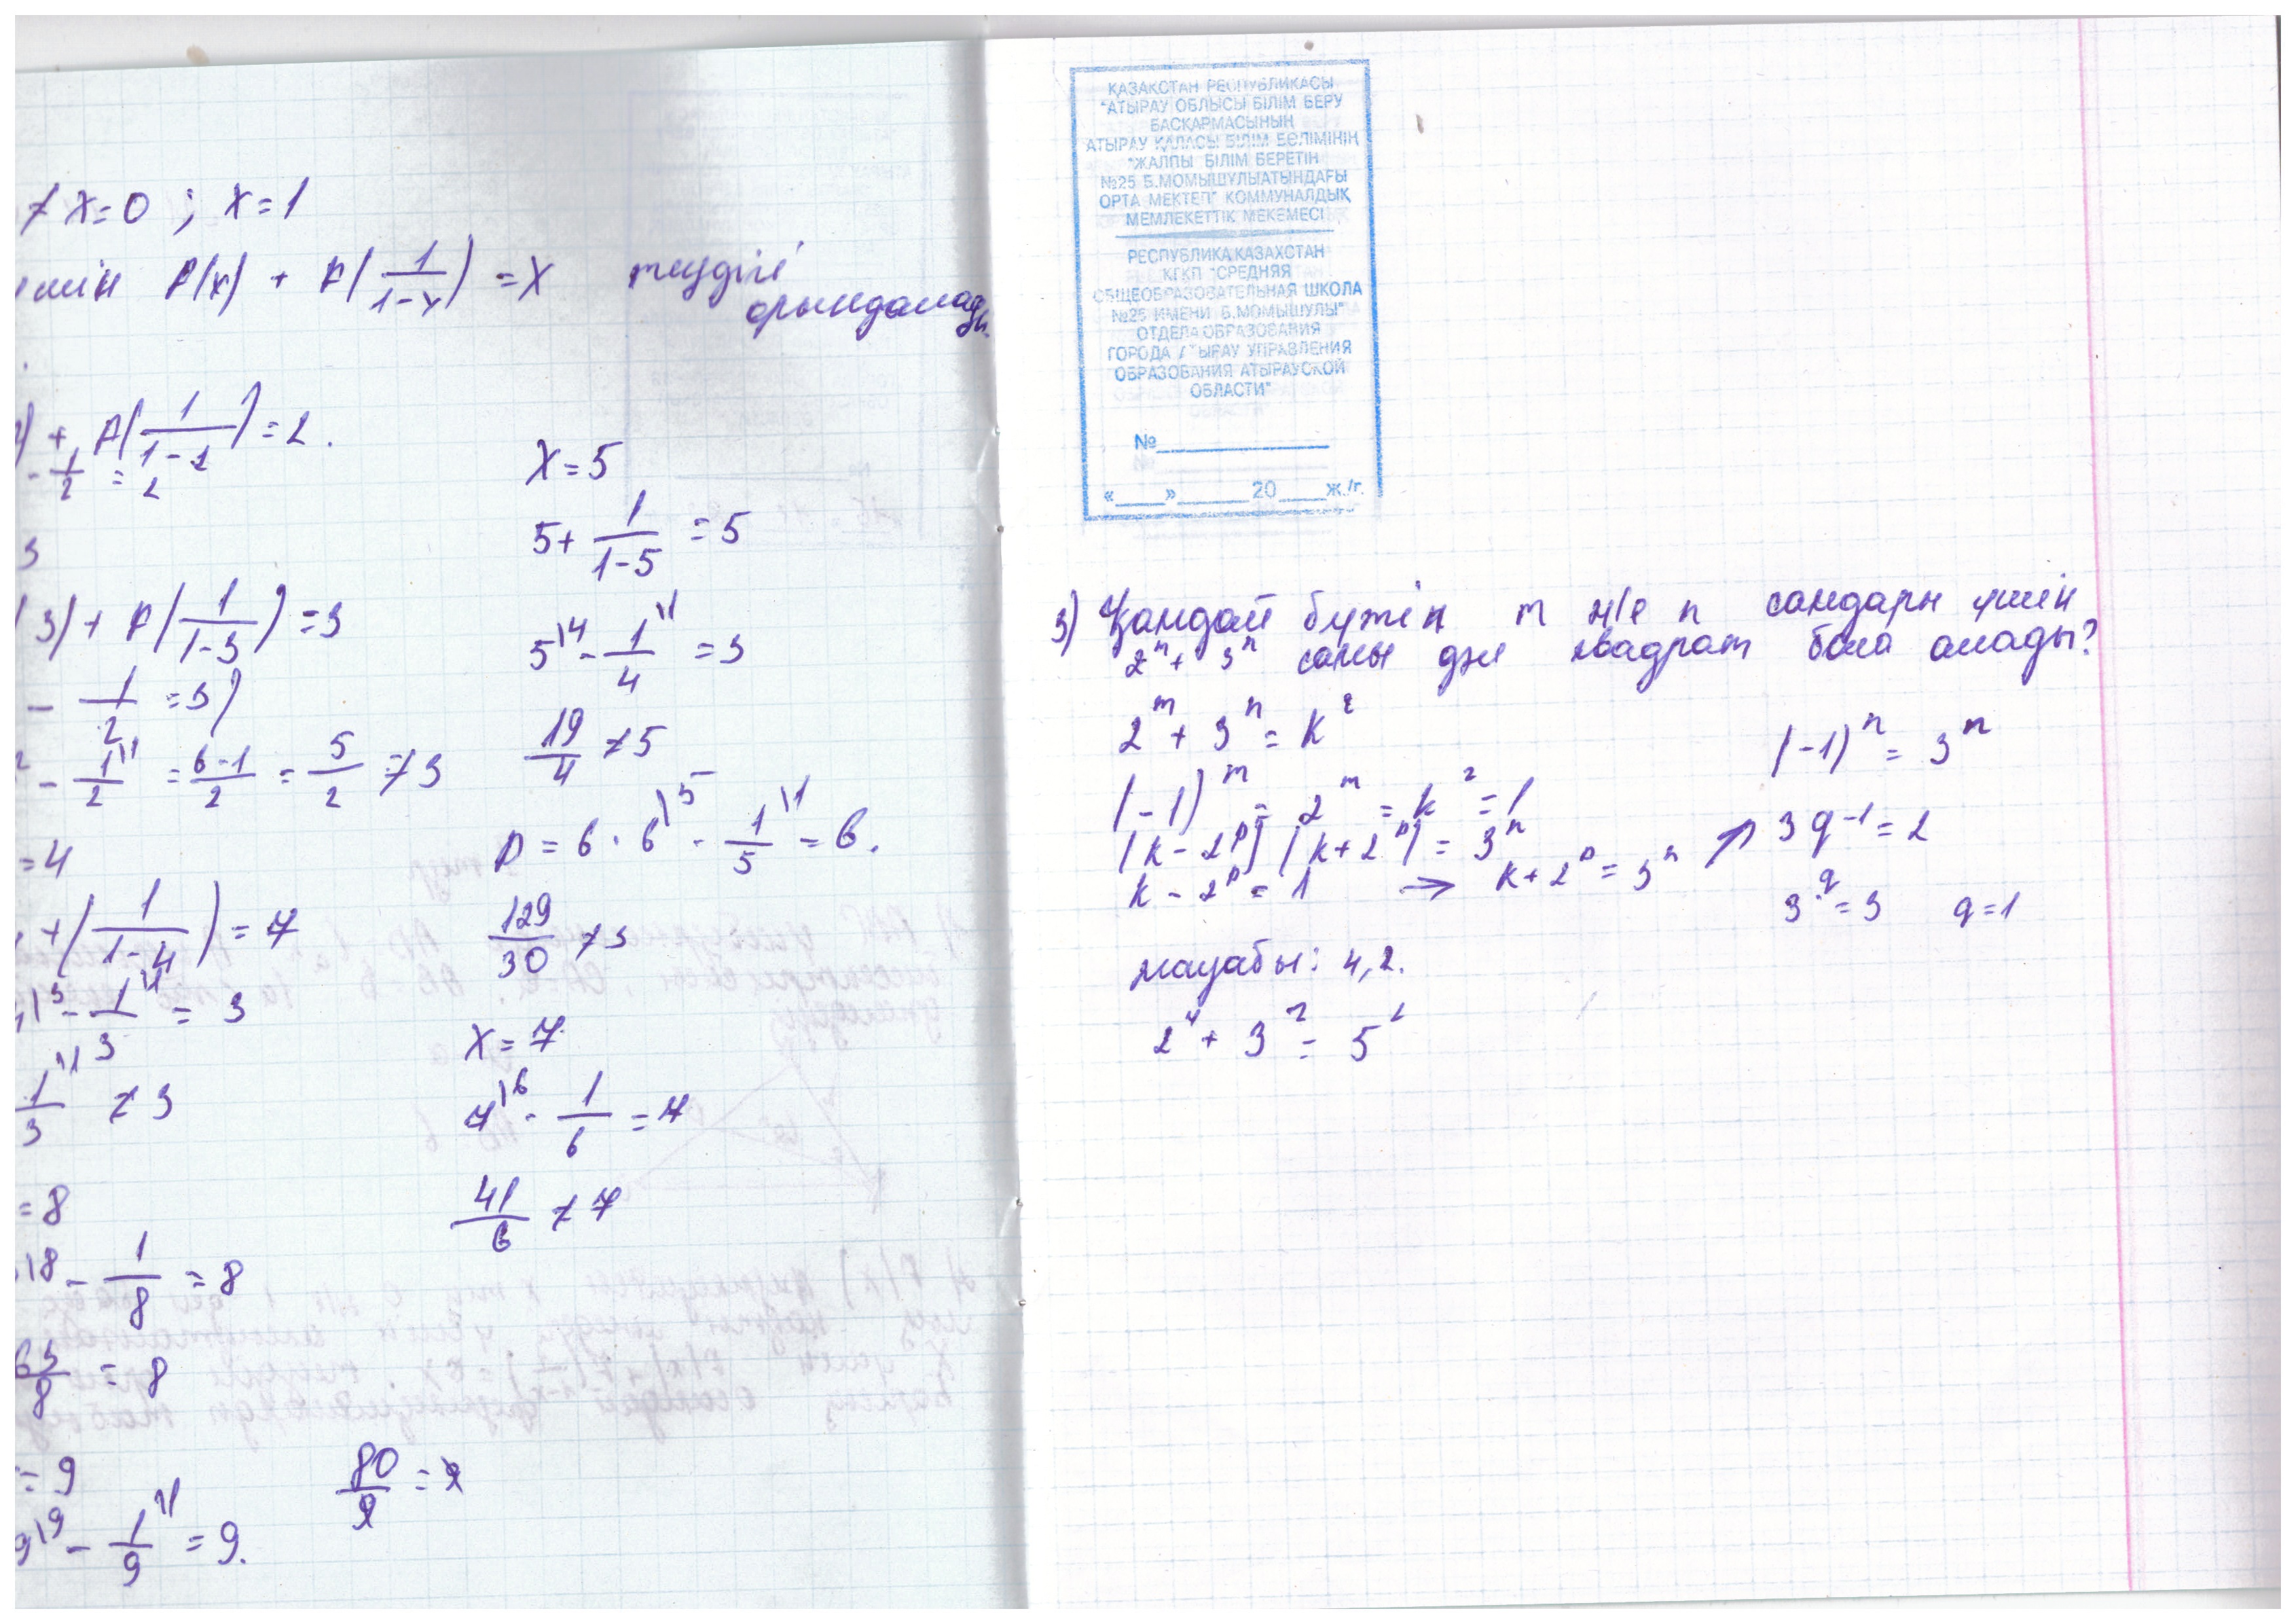 ≠ x=0 ; x=1
үшін P(x) + P(1/(1-x)) = x теңдігі
орындалады.
) + P(1/(1-2)) = 2.
- 1/2 = 2
3
(3) + P(1/(1-3)) = 3
- 1/2 = 3)
- 1/2 = (6-1)/2 = 5/2 ≠ 3
=4
+(1/(1-4)) = 7
- 1/3 = 3
1/3 ≠ 3
=8
- 1/8 = 8
63/8 = 8
= 9
9 - 1/9 = 9.
80/9 = 9
x=5
5+ 1/(1-5) = 5
5 - 1/4 = 3
19/4 ≠ 5
P = 6 · 6 - 1/5 = 6.
129/30 ≠ 3
x = 7
7 - 1/6 = 7
41/6 ≠ 7
ҚАЗАҚСТАН РЕСПУБЛИКАСЫ
"АТЫРАУ ОБЛЫСЫ БІЛІМ БЕРУ
БАСҚАРМАСЫНЫҢ
АТЫРАУ ҚАЛАСЫ БІЛІМ БӨЛІМІНІҢ
"ЖАЛПЫ БІЛІМ БЕРЕТІН
№25 Б.МОМЫШҰЛЫАТЫНДАҒЫ
ОРТА МЕКТЕП" КОММУНАЛДЫҚ
МЕМЛЕКЕТТІК МЕКЕМЕСІ
РЕСПУБЛИКА КАЗАХСТАН
КГКП "СРЕДНЯЯ
ОБЩЕОБРАЗОВАТЕЛЬНАЯ ШКОЛА
№25 ИМЕНИ Б.МОМЫШУЛЫ"
ОТДЕЛА ОБРАЗОВАНИЯ
ГОРОДА АТЫРАУ УПРАВЛЕНИЯ
ОБРАЗОВАНИЯ АТЫРАУСКОЙ
ОБЛАСТИ"
№
«____»______20____ж./г.
3) Қандай бүтін m н/е n сандары үшін
2^m + 3^n саны дәл квадрат бола алады?
2^m + 3^n = k²
(-1)^m = 2^m = k² = 1
(k - 2^p) (k+2^p) = 3^n
k - 2^p = 1 → k+2^p = 3^n ↗
(-1)^n = 3^n
3q-1 = 2
3^q = 3 q=1
жауабы: 4,2.
2⁴ + 3² = 5²